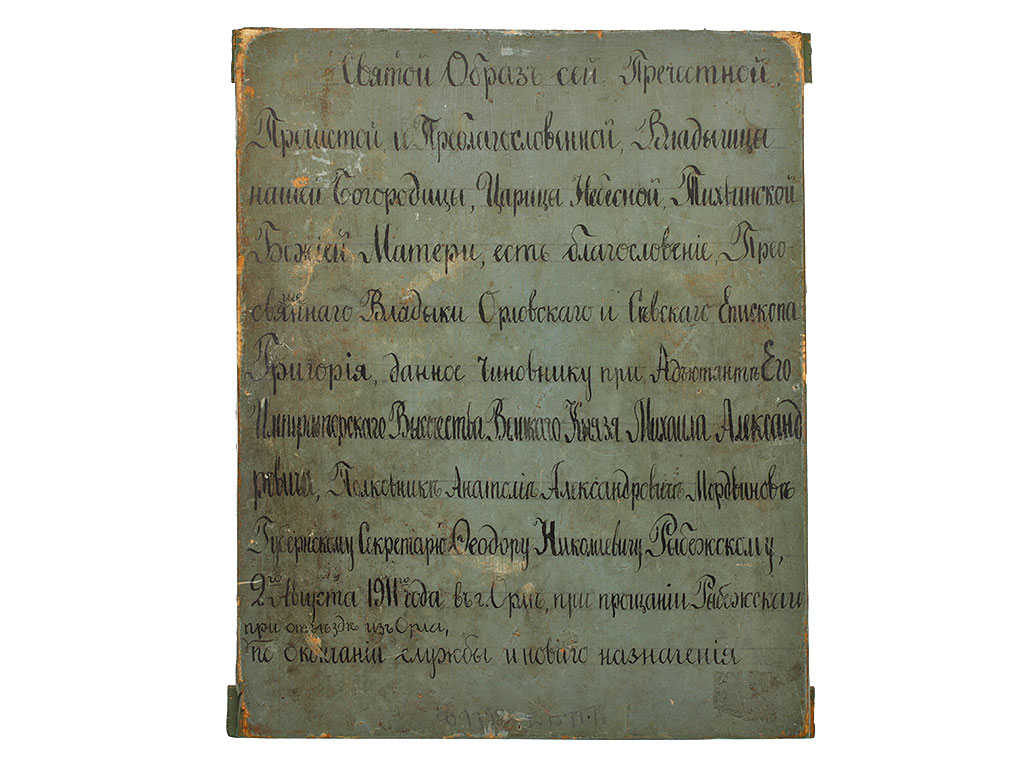 Святой Образъ сей Пречестной,
Пречистой и Преблагословенной, Владычицы
нашей Богородицы, Царицы Небесной, Тихвинской
Божіей Матери, есть благословеніе, Прео-
свящѣннаго Владыки Орловскаго и Сѣвскаго Епископа
Григорія, данное Чиновнику при Адъютантѣ Его
Императорскаго Высочества Великаго Князя Михаила Александ
ровича, Полковникѣ Анатоліѣ Александровичѣ Мордвиновѣ
Губернскому Секретарю Ѳеодору Николаевичу Рыбежскому,
2го Августа 1911го года въ г. Орлѣ, при прощаніи Рыбежскаго
при отъѣздѣ изъ Орла,
по окончаніи службы и новаго назначенія